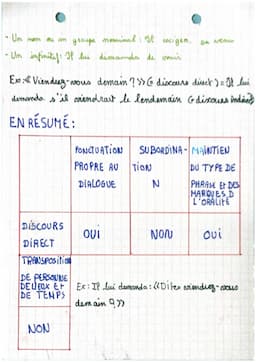 - Un nom ou un groupe nominal : Il exigea sa venue
- Un infinitif : Il lui demanda de venir
Ex: « Viendrez-vous demain ? » (→ discours direct) = Il lui
demanda s'il viendrait le lendemain (→ discours indirect)
EN RÉSUMÉ :
PONCTUATION
PROPRE AU
DIALOGUE
SUBORDINA-
TION
N
MAINTIEN
DU TYPE DE
PHRASE ET DES
MARQUES D
L'ORALITÉ
DISCOURS
DIRECT
OUI
NON
OUI
TRANSPOSITION
DE PERSONNE
DE LIEUX ET
DE TEMPS
NON
Ex: Il lui demanda : « Dites viendrez-vous
demain ? »